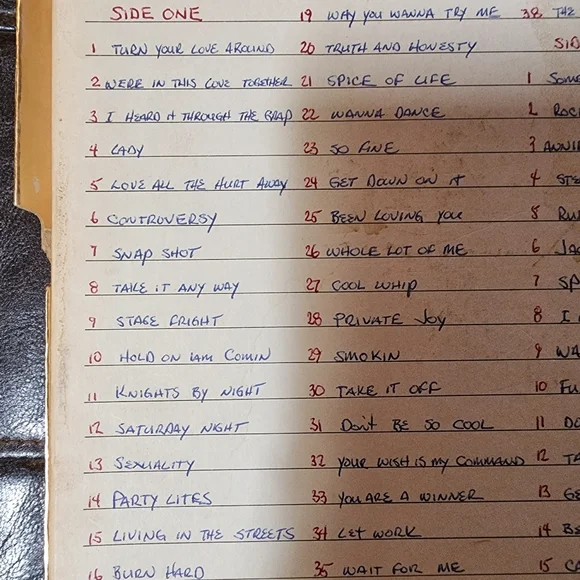 SIDE ONE
1 TURN YOUR LOVE AROUND
2 WERE IN THIS LOVE TOGETHER
3 I HEARD it THROUGH THE GRAP
4 LADY
5 LOVE ALL THE HURT AWAY
6 CONTROVERSY
7 SNAP SHOT
8 TAKE iT ANY WAY
9 STAGE FRIGHT
10 HOLD ON iAM COMIN
11 KNIGHTS BY NIGHT
12 SATURDAY NIGHT
13 SEXUALITY
14 PARTY LITES
15 LIVING IN THE STREETS
16 BURN HARD
19 WAY YOU WANNA TRY ME
20 TRUTH AND HONESTY
21 SPICE OF LIFE
22 WANNA DANCE
23 SO FINE
24 GET DOWN ON it
25 BEEN LOVING YOU
26 WHOLE LOT OF ME
27 COOL WHIP
28 PRIVATE JOY
29 SMOKIN
30 TAKE IT OFF
31 Don't BE SO COOL
32 YOUR WISH IS MY COMMAND
33 YOU ARE A WINNER
34 LET WORK
35 WAIT FOR ME
38 THE
SID
1 SOME
2 ROC
3 ANNI
4 STE
5 RU
6 JA
7 SP
8 I
9 WA
10 FU
11 DO
12 TA
13 GE
14 BE
15 CA